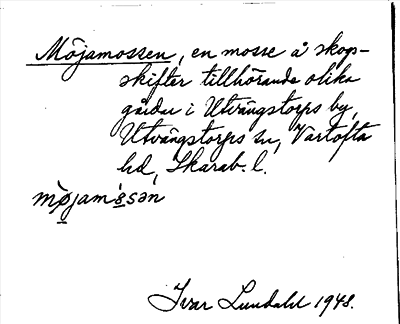 Möjamossen, en mosse å skogs-
skifter tillhörande olika
gårdar i Utvängstorps by,
Utvängstorps sn, Vartofta
hd, Skarab. l.
mø̀jamòsən
Ivar Lundahl 1948.